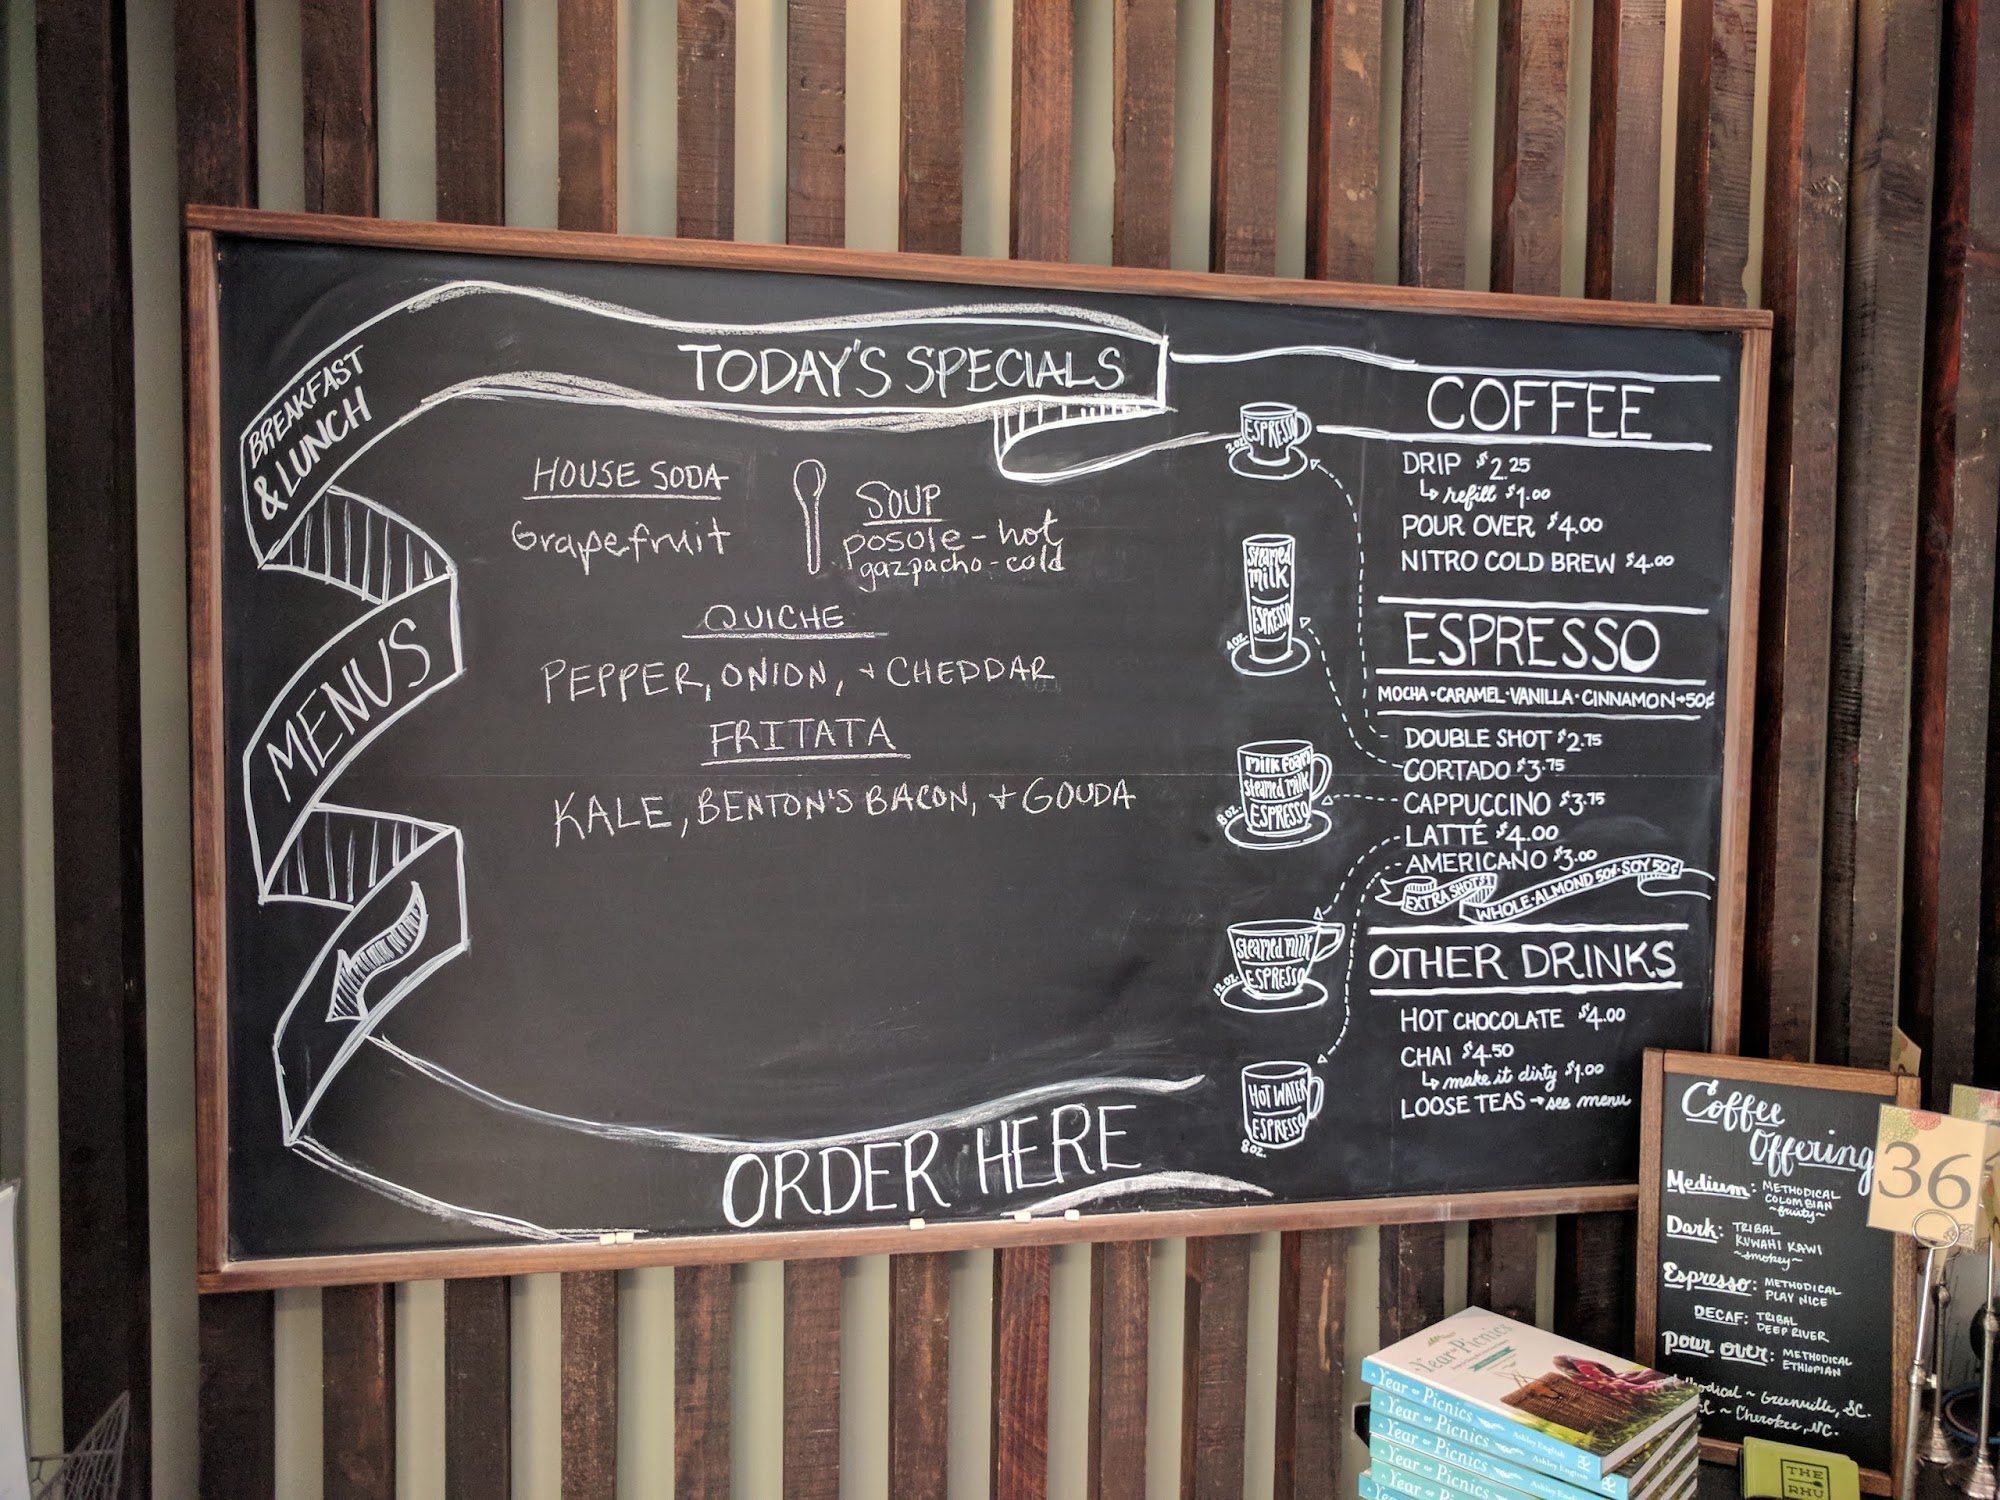 BREAKFAST
& LUNCH
MENUS
TODAY'S SPECIALS
HOUSE SODA
Grapefruit
SOUP
posole - hot
gazpacho - cold
QUICHE
PEPPER, ONION, + CHEDDAR
FRITATA
KALE, BENTON'S BACON, + GOUDA
ORDER HERE
ESPRESSO
2 OZ.
steamed
milk
ESPRESSO
4 OZ.
milk foam
steamed milk
ESPRESSO
8 OZ.
steamed milk
ESPRESSO
12 OZ.
HOT WATER
ESPRESSO
8 OZ.
COFFEE
DRIP $2.25
↳ refill $1.00
POUR OVER $4.00
NITRO COLD BREW $4.00
ESPRESSO
MOCHA · CARAMEL · VANILLA · CINNAMON → 50¢
DOUBLE SHOT $2.75
CORTADO $3.75
CAPPUCCINO $3.75
LATTÉ $4.00
AMERICANO $3.00
EXTRA SHOT $1
WHOLE · ALMOND 50¢ · SOY 50¢
OTHER DRINKS
HOT CHOCOLATE $4.00
CHAI $4.50
↳ make it dirty $1.00
LOOSE TEAS → see menu
Coffee
Offering
Medium: METHODICAL
COLOMBIAN
~fruity~
Dark: TRIBAL
KUWAHI KAWI
~smokey~
Espresso: METHODICAL
PLAY NICE
DECAF: TRIBAL
DEEP RIVER
Pour over: METHODICAL
ETHIOPIAN
~ Greenville, SC.
~ Cherokee, NC.
36
A Year of Picnics
A Year of Picnics
Ashley English
A Year of Picnics
Ashley English
A Year of Picnics
Ashley English
A Year of Picnics
Ashley English
Year of Picnics
THE
RHU